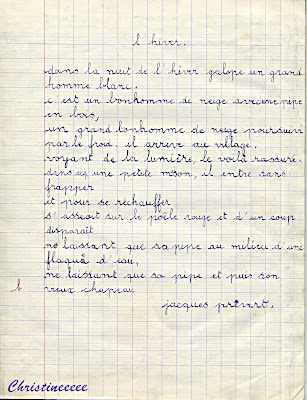 l hiver.
dans la nuit de l'hiver galope un grand
homme blanc.
c'est un bonhomme de neige avec une pipe
en bois,
un grand bonhomme de neige poursuivi
par le froid. il arrive au village.
voyant de la lumière, le voilà rassuré.
dans une petite maison, il entre sans
frapper
et pour se rechauffer
s'asseoit sur le poêle rouge et d'un coup
disparaît
ne laissant que sa pipe au milieu d'une
flaque d'eau,
ne laissant que sa pipe et puis son
b vieux chapeau
jacques prévert.
Christineeeee